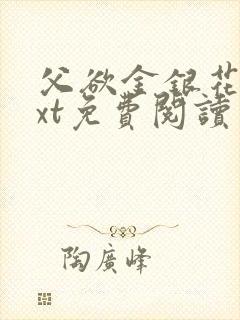 父欲金銀花
xt免費閱讀
陶廣峰